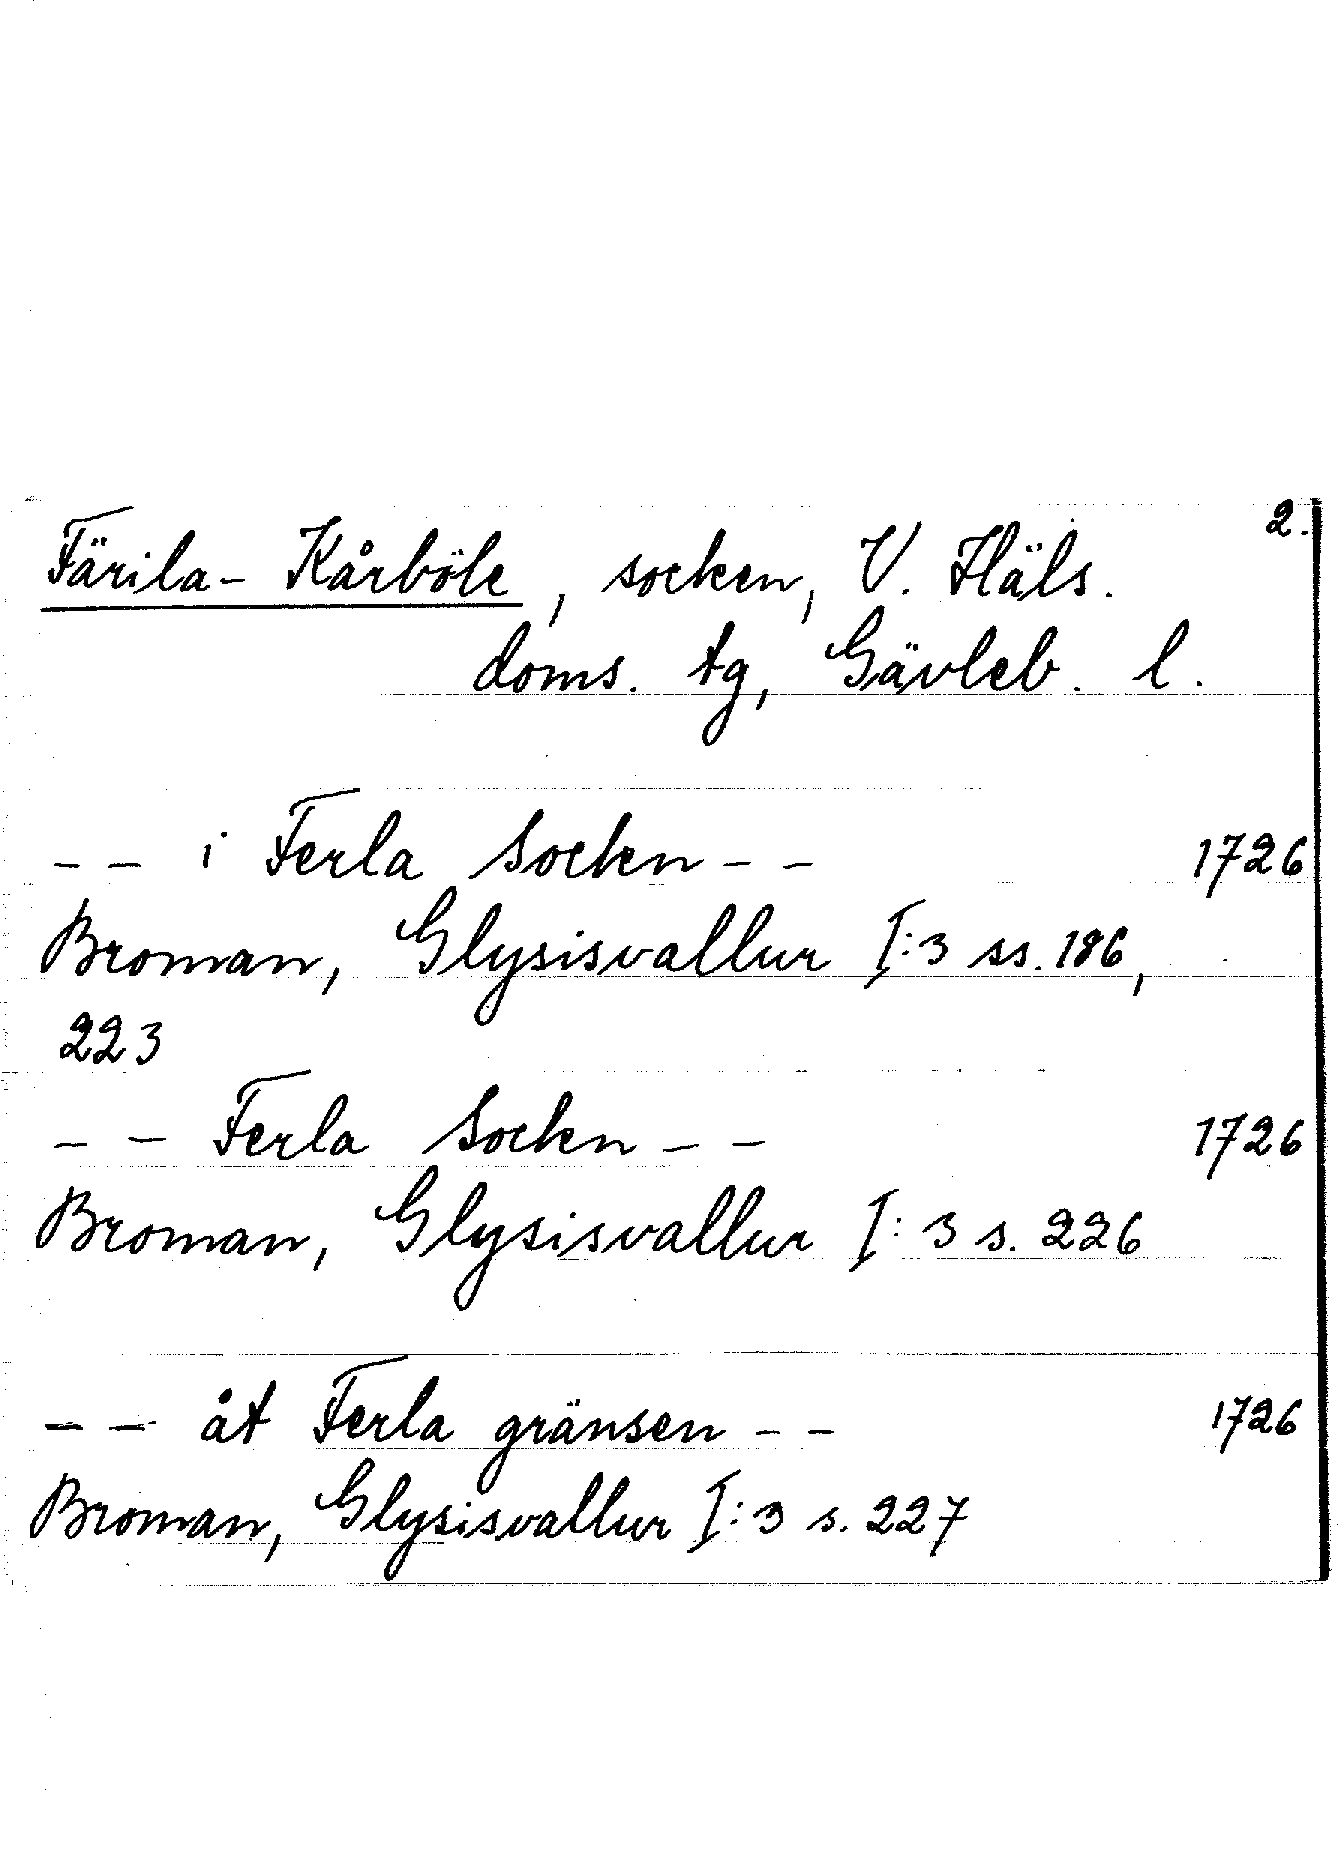 2.
Färila-Kårböle, socken, V. Häls.
doms. tg, Gävleb. l.
-- i Ferla Socken -- 1726
Broman, Glysisvallur I:3 ss. 186,
223
-- Ferla Socken -- 1726
Broman, Glysisvallur I:3 s. 226
-- åt Ferla gränsen -- 1726
Broman, Glysisvallur I:3 s. 227